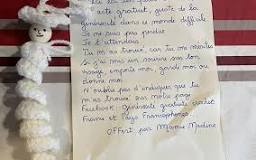 acte gratuit, geste de la
générosité dans ce monde difficile
Je ne suis pas perdue
Je t'attendais !
Tu m'as trouvé, car tu me mérites
Si j'ai mis un sourire sur ton
visage, emporte moi, garde moi ou
donne moi.
N'oublie pas d'indiquer que tu
m'as trouvé sur notre page
Facebook générosité gratuite
France et Pays Francophones
Offert par Mamie Martine